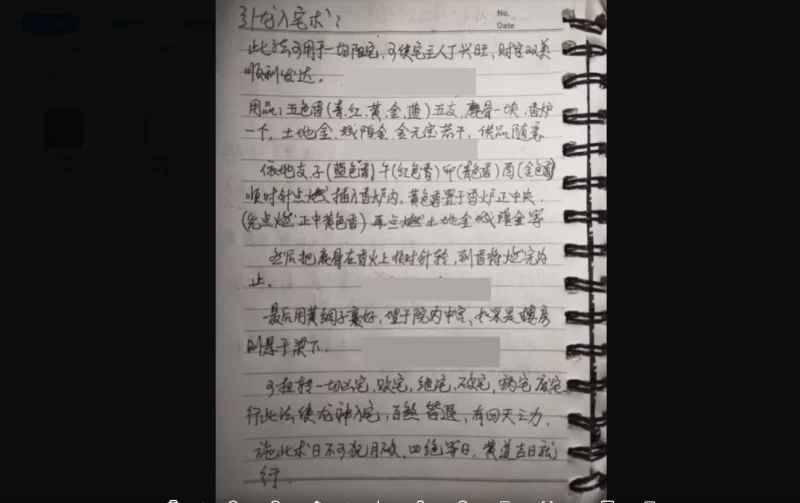 引龙入宅术：
No.
Date
此法可用于一切阳宅，可使宅主人丁兴旺，财官双美
顺利发达。
用品：五色香(青、红、黄、金、蓝)五支，鹿骨一块，香炉
一个，土地金，城隍金，金元宝若干，供品随意
依地支，子(蓝色香)午(红色香)卯(青色香)酉(金色香)
顺时针点燃插入香炉内，黄色香置于香炉正中央，
(先点燃正中黄色香)再点燃土地金城隍金等
然后把鹿骨在香火上顺时针转，到香将燃完为
止。
最后用黄绸子裹好，埋于院内中宫，如果是楼房
则悬于梁下．
可扭转一切凶宅，败宅，绝宅，破宅，病宅
行此法使龙神入宅，百煞皆退，有回天之力．
施此术日不可犯月破，四绝等日，黄道吉日就
行